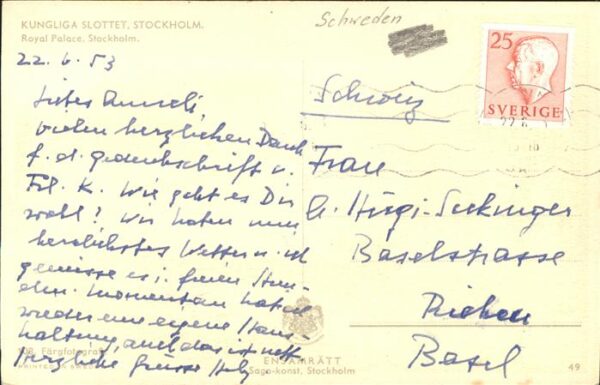 KUNGLIGA SLOTTET, STOCKHOLM.
Royal Palace, Stockholm.
Schweden
25
SVERIGE
22.6.53
Liebes Anneli
vielen herzlichen Dank
f. d. gedenkschrift u.
Frl. K. Wie geht es Dir
wohl? Wir haben nun
herrlichstes Wetter u. ich
geniesse es i. freien Stun-
den. Momentan haben
wieder eine eigene Haus-
haltung, und das ist nett
Herzliche Grüsse
Schweiz
Frau
Hügi-Seckinger
Baselstrasse
Riehen
Basel
Färgfotografi
PRINTED IN SWEDEN
ENSAMRÄTT
Saga-konst, Stockholm
49